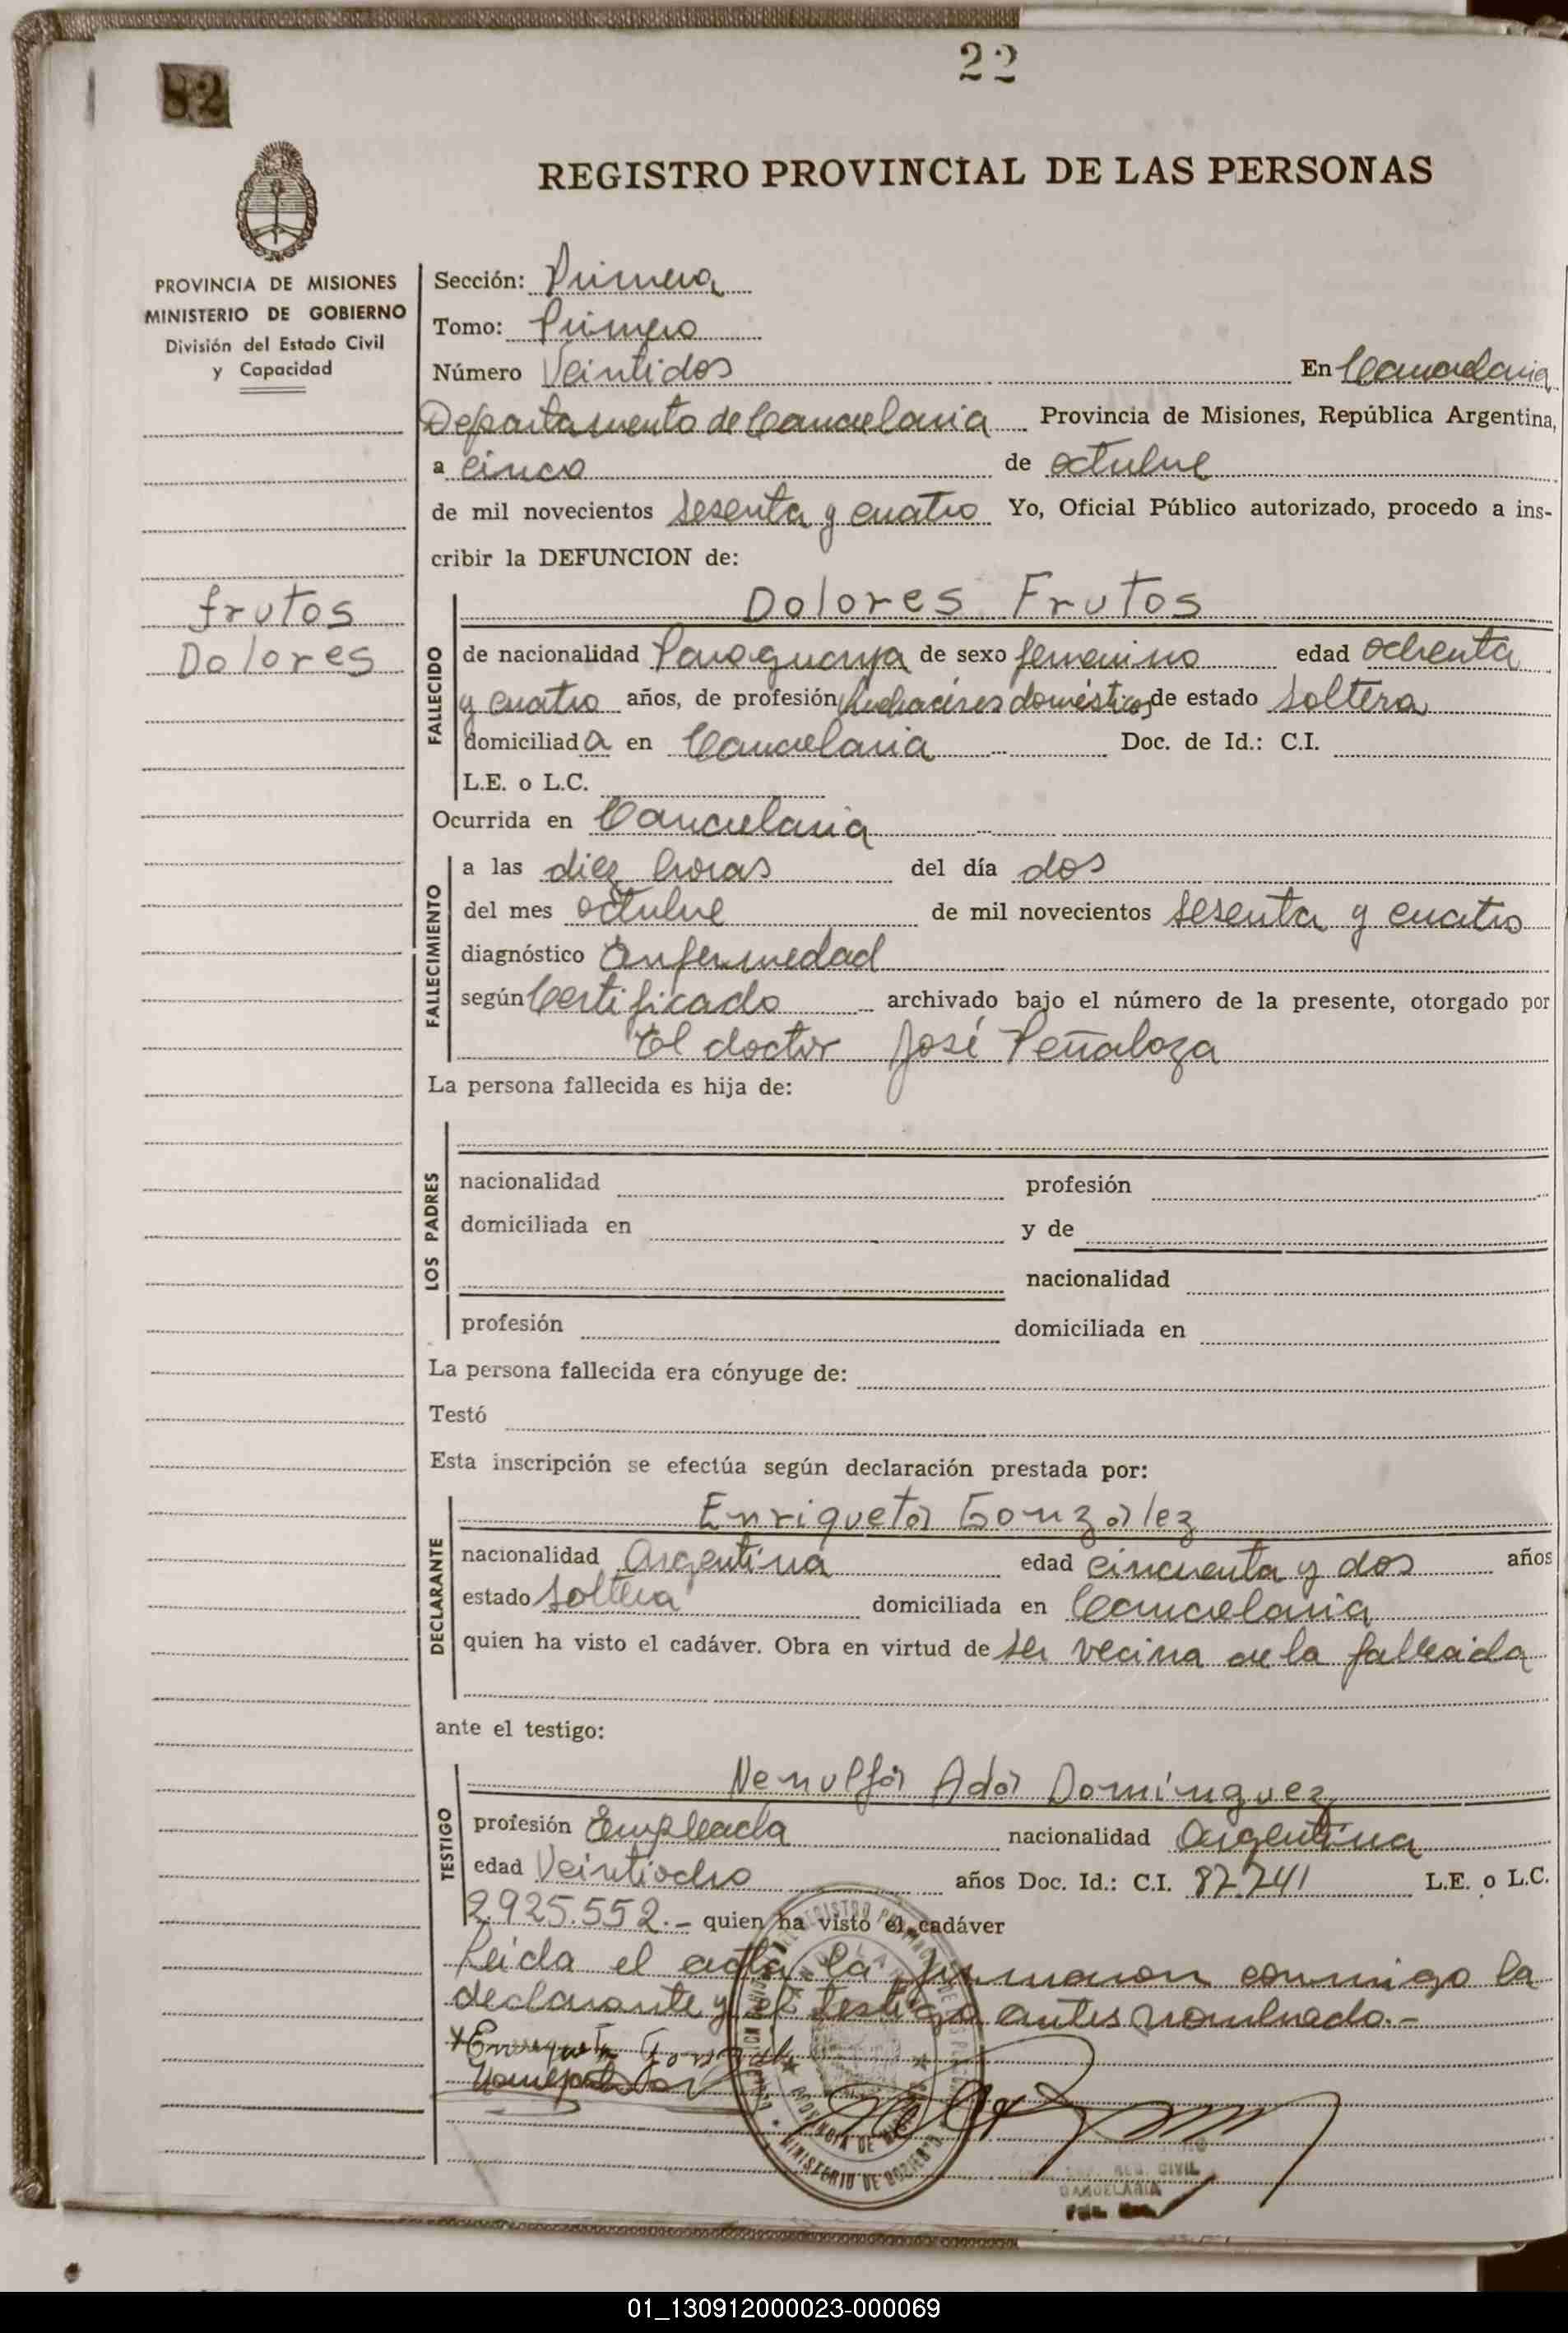 22
82
REGISTRO PROVINCIAL DE LAS PERSONAS
PROVINCIA DE MISIONES
MINISTERIO DE GOBIERNO
División del Estado Civil
y Capacidad
Sección: Primera
Tomo: Primero
Número Veintidos En Candelaria
Departamento de Candelaria Provincia de Misiones, República Argentina,
a cinco de octubre
de mil novecientos sesenta y cuatro Yo, Oficial Público autorizado, procedo a ins-
cribir la DEFUNCION de:
frutos
Dolores
FALLECIDO
Dolores Frutos
de nacionalidad Paraguaya de sexo femenino edad ochenta
y cuatro años, de profesión quehaceres domésticos de estado soltera
domiciliada en Candelaria Doc. de Id.: C.I.
L.E. o L.C.
Ocurrida en Candelaria
FALLECIMIENTO
a las diez horas del día dos
del mes octubre de mil novecientos sesenta y cuatro
diagnóstico Enfermedad
según Certificado archivado bajo el número de la presente, otorgado por
El doctor José Peñaloza
La persona fallecida es hija de:
LOS PADRES
nacionalidad profesión
domiciliada en y de
nacionalidad
profesión domiciliada en
La persona fallecida era cónyuge de:
Testó
Esta inscripción se efectúa según declaración prestada por:
DECLARANTE
Enriqueta Gonzalez
nacionalidad Argentina edad cincuenta y dos años
estado soltera domiciliada en Candelaria
quien ha visto el cadáver. Obra en virtud de ser vecina de la fallecida
ante el testigo:
TESTIGO
Nenulfa Ada Domínguez
profesión Empleada nacionalidad Argentina
edad Veintiocho años Doc. Id.: C.I. 87.741 L.E. o L.C.
2.925.552.- quien ha visto el cadáver
Leida el acta la firmaron conmigo la
declarante y el testigo antes nombrado.-
Enriqueta Gonzalez
PROVINCIA DE
MINISTERIO DE GOBIERNO
REG. CIVIL
CANDELARIA
01_130912000023-000069